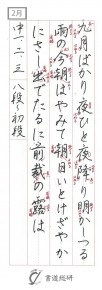 2月
九月ばかり夜ひと夜降り明かしつる
雨の今朝はやみて朝日いとけざやか
にさし出でたるに前栽の露は
中一、二、三 八段~初段
書道総研